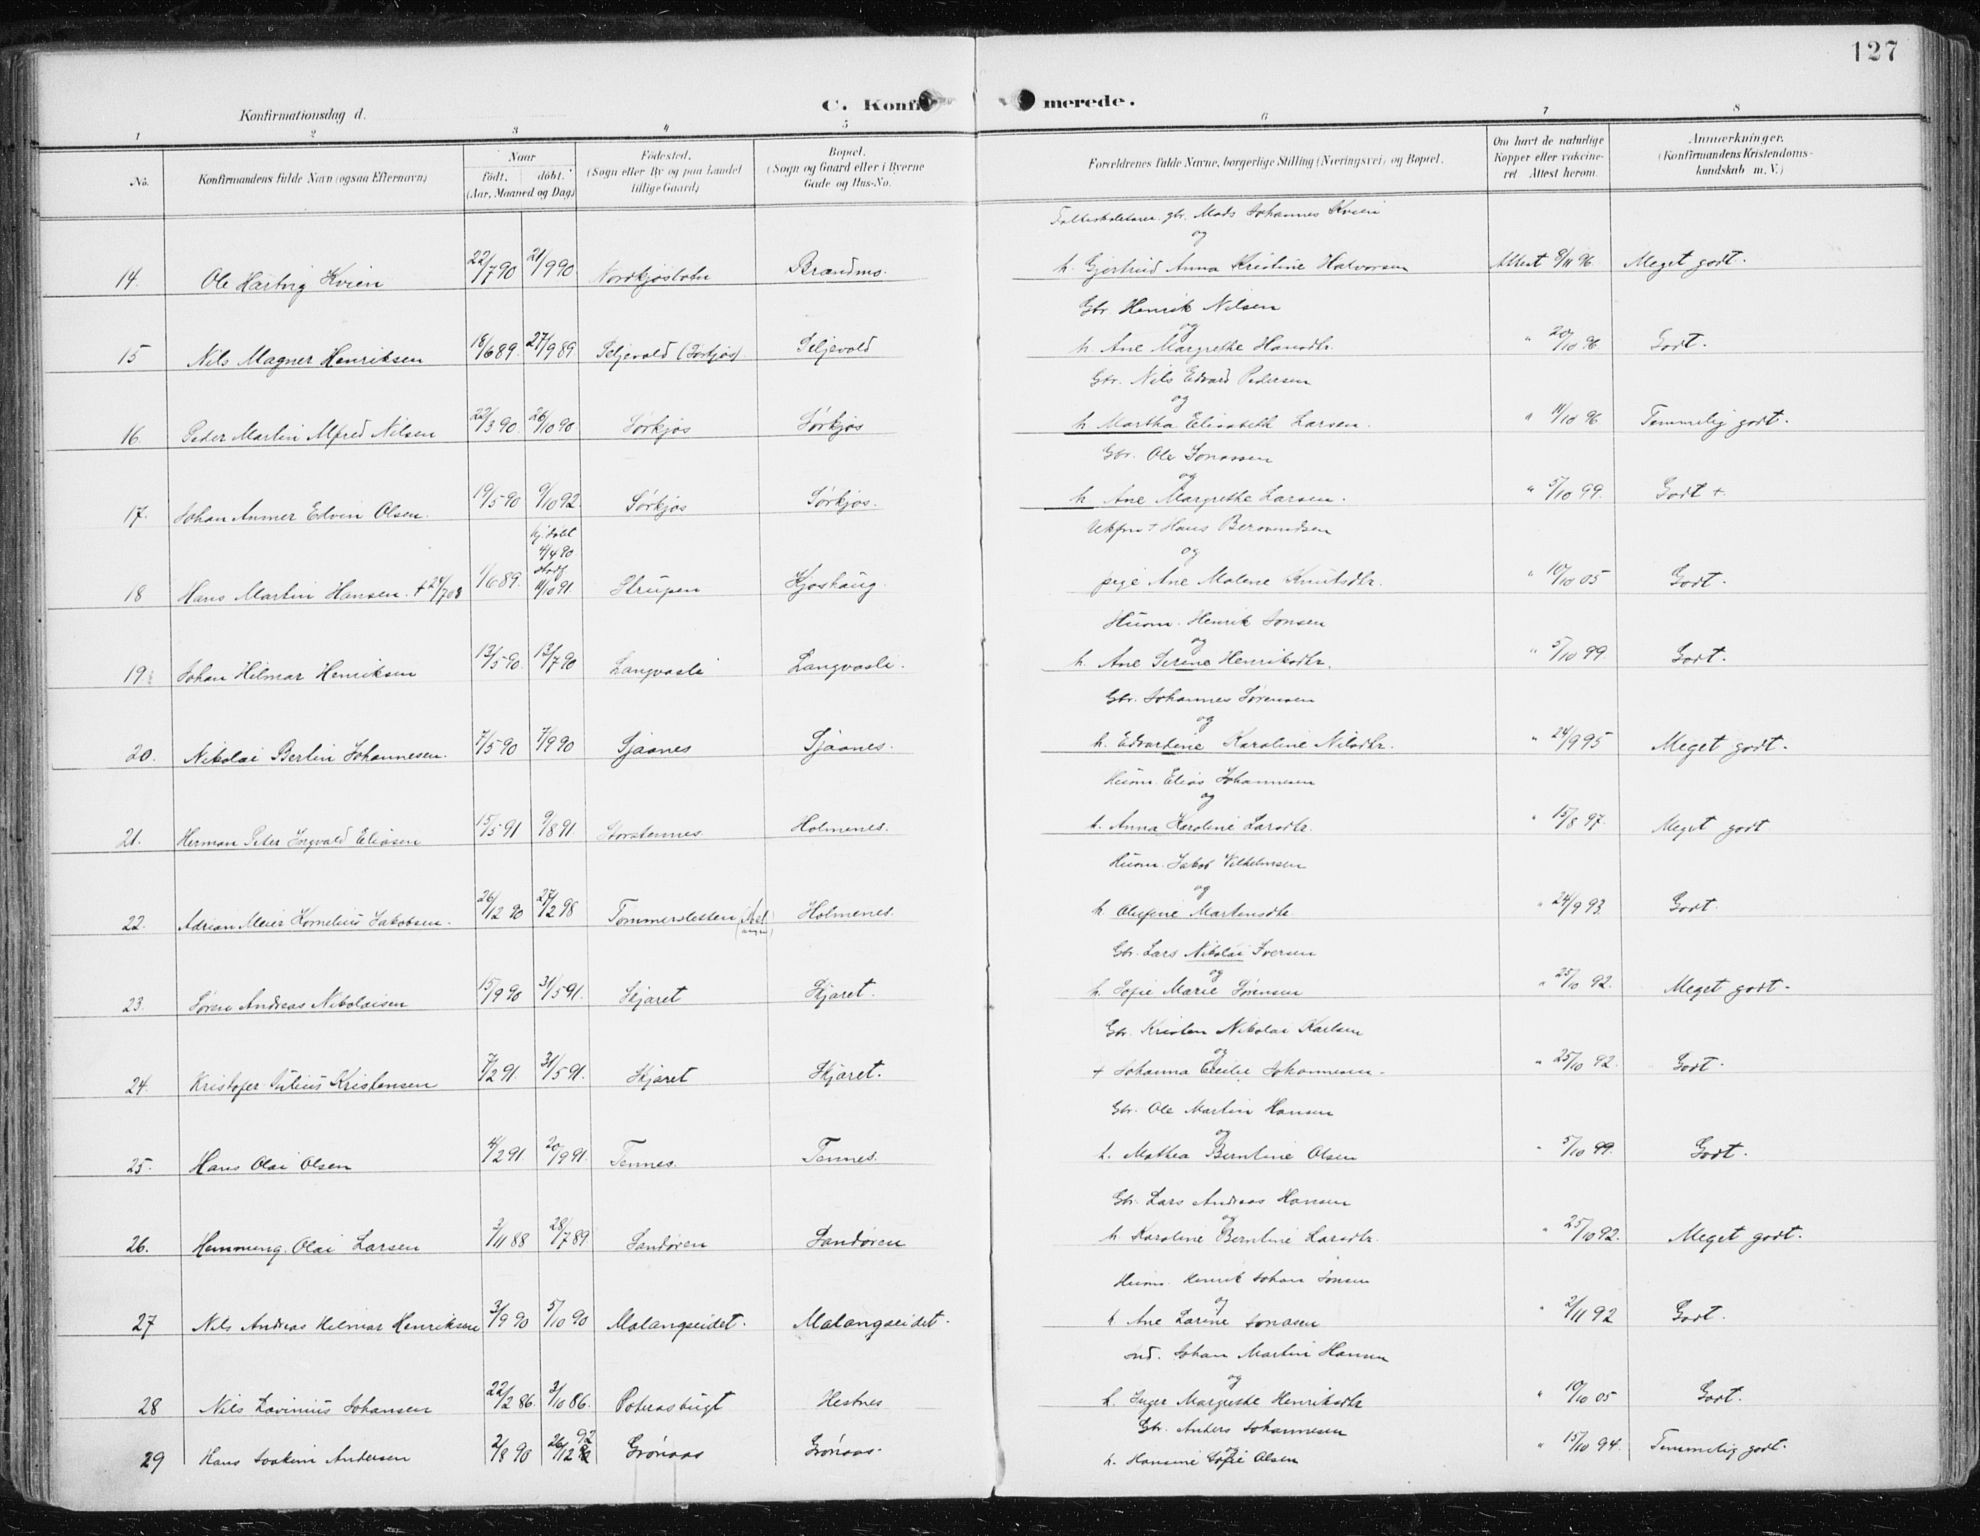 127
C. Konfirmerede.
Konfirmationsdag d.
1 2 3 4 5 6 7 8
No. Konfirmandens fulde Navn (ogsaa Efternavn) Naar födt. döbt. (Aar, Maaned og Dag) Födested. (Sogn eller By og paa Landet tillige Gaard) Bopæl. (Sogn og Gaard eller i Byerne Gade og Hus-No. Forældrenes fulde Navne, borgerlige Stilling (Næringsvei) og Bopæl. Om havt de naturlige Kopper eller vakcineret Attest herom. Anmærkninger. (Konfirmandens Kristendomskundskab m. V.)
gbr. Mads Johannes Kvien
og
14. Ole Hartvig Kvien 22/7 90 21/9 90 Nordkjosbotn Brandmo. h. Gjertrud Anna Kristine Halvorsen Attest 9/11 96 Meget godt.
Gbr. Henrik Nilsen
og
15 Nils Magner Henriksen 18/6 89. 27/9 89. Seljevold (Sørkjos) Seljevold h. Ane Margrethe Hansdtr. " 20/10 96 Godt.
Gbr. Nils Edvard Pedersen
og
16. Peder Martin Alfred Nilsen 22/3 90. 26/10 90 Sørkjos Sørkjos h. Martha Elisabeth Larsen. " 11/10 96 Temmelig godt.
Gbr. Ole Jonassen
og
17. Johan Anmer Edvin Olsen. 19/5 90 9/10 92 Sørkjos Sørkjos. h. Ane Margrethe Larsen. " 5/10 99. Godt +
Ukfm + Hans Berovendsen
og
18 Hans Martin Hansen. + 24/7 08 1/6 89. hj. døbt 4/4 90 stadf 11/10 91 Strupen Kjoshaug. pige Ane Malene Knutsdtr. " 10/10 05 Godt.
Husm. Henrik Jonsen
og
19. Johan Hilmar Henriksen 13/5 90 13/7 90 Langvasli Langvasli. h. Ane Serine Henriksdtr. " 5/10 99. Godt.
Gbr. Johannes Sørensen
og
20. Nikolai Bertin Johannesen. 7/5 90 7/9 90 Sjaanes Sjaanes. h. Edvardine Karoline Nilsdtr. " 24/9 95 Meget godt.
Husm. Elias Johannesen
og
21. Herman Peter Ingvald Eliasen 15/5 91 9/8 91. Storstennes. Holmenes. h. Anna Karoline Larsdtr. " 15/8 97. Meget godt
Husm. Jakob Vilhelmsen
og
22. Adrian Meier Kornelius Jakobsen. 26/12 90 27/2 98 Tommerslesten Holmenes. h. Olufine Martinsdtr " 24/9 93. Godt.
Gbr. Lars Nikolai Iversen
og
23. Søren Andreas Nikolaisen 15/9 90 31/5 91. Skjaret Skjaret. h. Sofie Marie Sørensen " 25/10 92. Meget godt.
Gbr. Kristen Nikolai Karlsen
og
24. Kristofer Julius Kristensen 7/2 91. 31/5 91. Skjaret Skjaret. + Johanna Cecilie Johannesen. " 25/10 92. Godt.
Gbr. Ole Martin Hansen
og
25. Hans Olai Olsen 4/2 91. 20/9 91. Tennes. Tennes. h. Mathea Berntine Olsen " 5/10 99. Godt.
Gbr. Lars Andreas Hansen
og
26. Hemming Olai Larsen 3/11 88 28/7 89. Sandøren Sandøren h Karoline Berntine Larsdtr. " 25/10 92. Meget godt.
Husm. Henrik Johan Jonsen
og
27 Nils Andreas Hilmar Henriksen 3/9 90 5/10 90 Malangseidet. Malangseidet. h Ane Larine Jonasen " 2/11 92 Godt.
Ind. Johan Martin Hansen
og
28 Nils Lavinius Johansen 22/2 86. 3/10 86. Poterasbugt Hestnes h. Inger Margrethe Henriksdtr " 10/10 05 Godt.
Gbr. Anders Johannesen
og
29 Hans Joakim Andersen 2/8 90 26/12 92 Grönaas Grönaas. h. Hansine Sofie Olsen " 15/10 94. Temmelig godt.